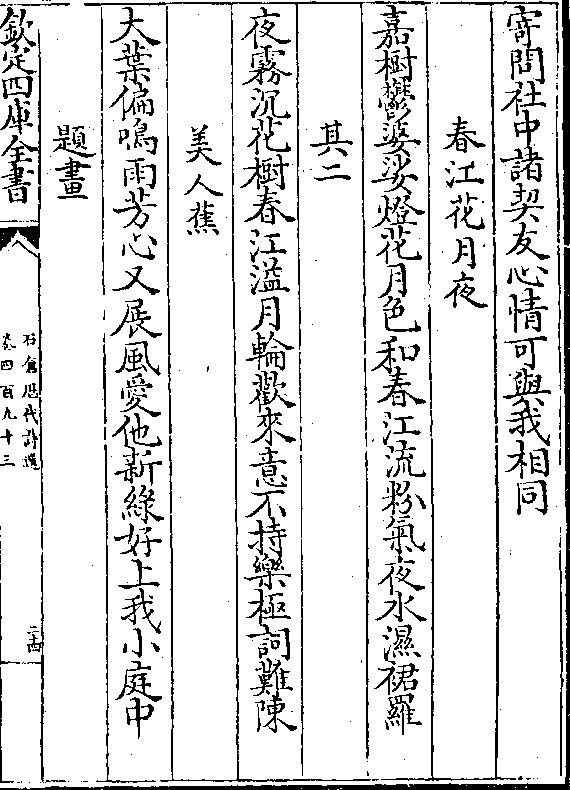 寄問社中諸契友心情可與我相同
春江花月夜
嘉樹鬱婆娑燈花月色和春江流粉氣夜水濕裙羅
其二
夜霧沉花樹春江溢月輪歡來意不持樂極詞難陳
美人蕉
大葉偏鳴雨芳心又展風愛他新綠好上我小庭中
題畫
欽定四庫全書
石倉歷代詩選
卷四百九十三
二十四